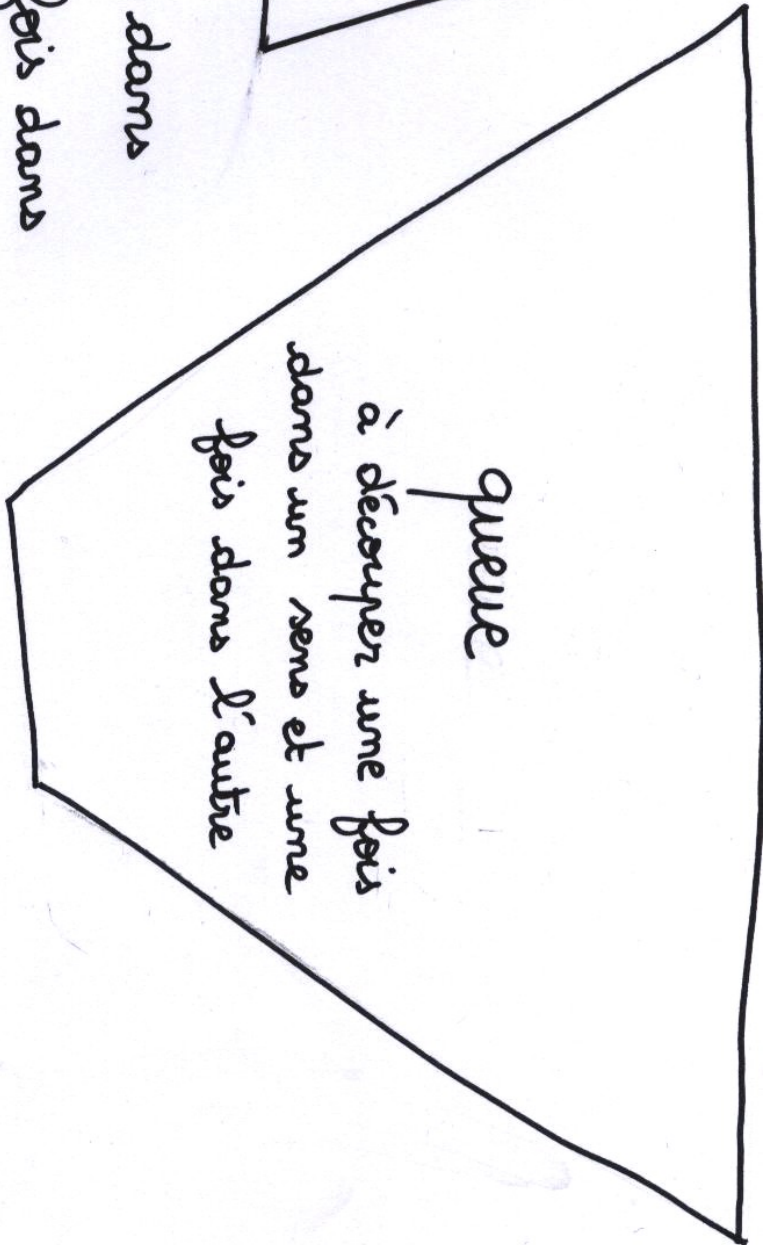 queue
à découper une fois
dans un sens et une
fois dans l'autre
dans
fois dans